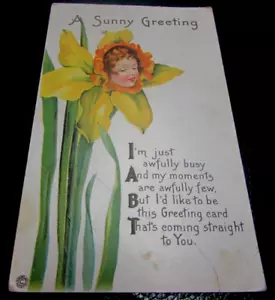 A Sunny Greeting
I'm just
awfully busy
And my moments
are awfully few,
But I'd like to be
this Greeting card
That's coming straight
to You.